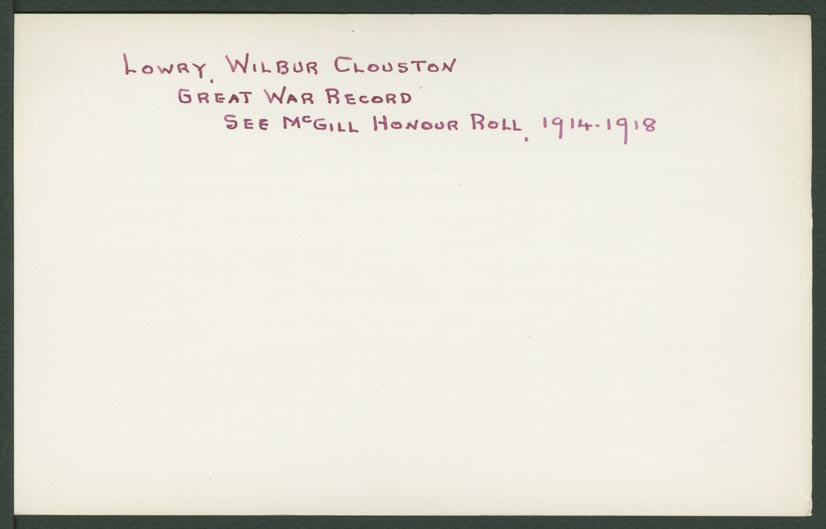 LOWRY, WILBUR CLOUSTON
GREAT WAR RECORD
SEE McGILL HONOUR ROLL, 1914-1918